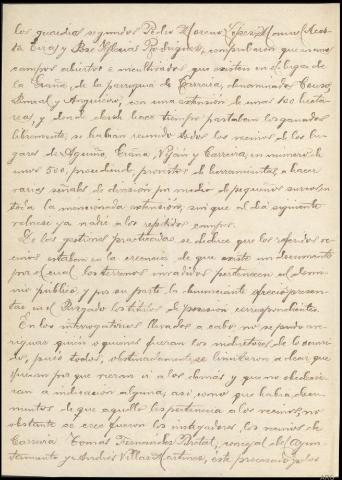 los guardias segundos Pedro Moreno López y Manuel Acos-
ta Eiras y José Yglesias Rodriguez, comprobaron que en unos
campos abiertos e incultivados que existen en el lugar de
la Graña, de la parroquia de Carreira, denominados
y con una extensión de unas 100 hectá-
reas, y donde desde hace tiempo pastaban los ganados
libremente, se habían reunido todos los vecinos de los lu-
gares de Aguiño, Graña, Vilar y Carreira, en número de
unos 500, procediendo, provistos de herramientas, a hacer
varias señales de división por medio de pequeños surcos, en
toda la mencionada extensión, sin que al día siguiente
volviese ya nadie a los repetidos campos.
De las gestiones practicadas se deduce que los referidos ve-
cinos estaban en la creencia de que existe un documento
por el cual los terrenos invadidos pertenecen al domi-
nio público, y por su parte la denunciante ofreció presen-
tar en el Juzgado los títulos de posesión correspondientes.
En los interrogatorios llevados a cabo no se pudo ave-
riguar quién o quienes fueran los inductores de lo ocurri-
do, pues todos, obstinadamente, se limitaron a decir que
fueron por que vieran ir a los demás y que no obedecie-
ran a indicación alguna, así como que había docu-
mentos de que aquello les pertenecía a los vecinos, no
obstante se cree fueron los instigadores, los vecinos de
Carreira Tomás Fernández Brotat, concejal del Ayun-
tamiento y Andrés Villar Martínez, éste procesado por los